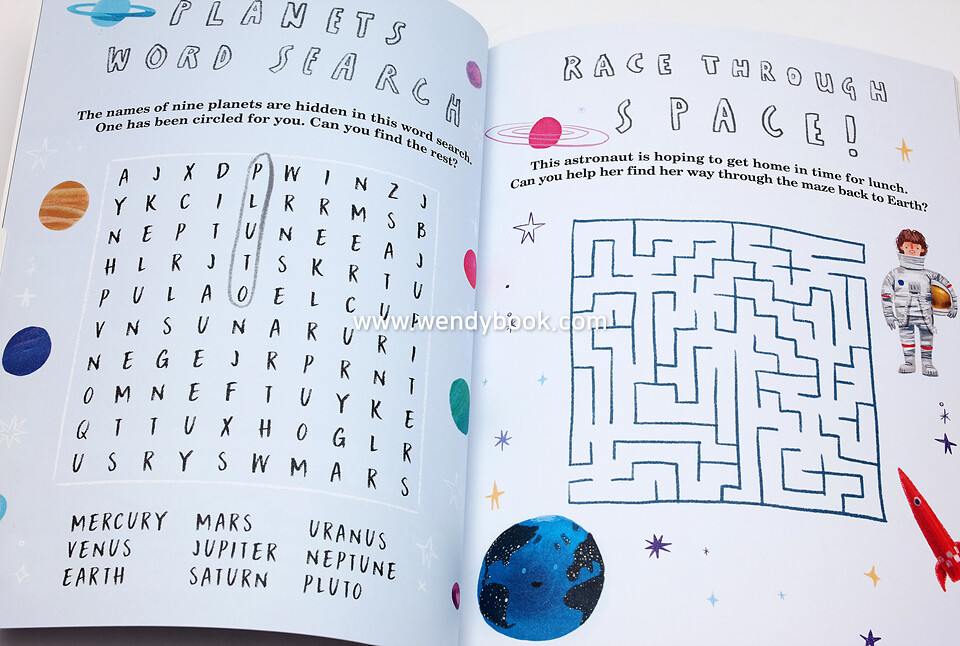 PLANETS
WORD SEARCH
The names of nine planets are hidden in this word search.
One has been circled for you. Can you find the rest?
A J X D P W I N Z J
Y K C I L R R M S B
N E P T U N E E A J
H L R J T S K R T U
P U L A O E L C U P
V N S U N A R U R I
N E G E J R P R N T
O M N E F T U Y K E
Q T T U X H O G L R
U S R Y S W M A R S
MERCURY MARS URANUS
VENUS JUPITER NEPTUNE
EARTH SATURN PLUTO
RACE THROUGH
SPACE!
This astronaut is hoping to get home in time for lunch.
Can you help her find her way through the maze back to Earth?
www.wendybook.com